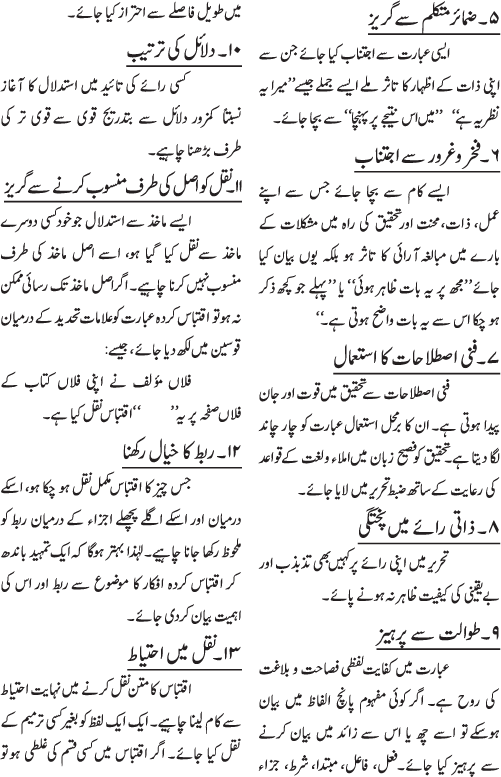 ۵۔ضمائر متکلم سے گریز
ایسی عبارت سے اجتناب کیا جائے جن سے
اپنی ذات کے اظہار کا تاثر ملے ایسے جملے جیسے ’’میرا یہ
نظریہ ہے‘‘ ’’میں اس نتیجے پر پہنچا‘‘ سے بچا جائے۔
۶۔فخر و غرور سے اجتناب
ایسے کام سے بچا جائے جس سے اپنے
عمل، ذات، محنت اور تحقیق کی راہ میں مشکلات کے
بارے میں مبالغہ آرائی کا تاثر ہو بلکہ یوں بیان کیا
جائے ’’مجھ پر یہ بات ظاہر ہوئی‘‘ یا ’’پہلے جو کچھ ذکر
ہو چکا اس سے یہ بات واضح ہوتی ہے۔‘‘
۷۔فنی اصطلاحات کا استعمال
فنی اصطلاحات سے تحقیق میں قوت اور جان
پیدا ہوتی ہے۔ ان کا برمحل استعمال عبارت کو چار چاند
لگا دیتا ہے تحقیق کو فصیح زبان میں املاء ولغت کے قواعد
کی رعایت کے ساتھ ضبط تحریر میں لایا جائے۔
۸۔ذاتی رائے میں پختگی
تحریر میں اپنی رائے پر کہیں بھی تذبذب اور
بے یقینی کی کیفیت ظاہر نہ ہونے پائے۔
۹۔طوالت سے پرہیز
عبارت میں کفایت لفظی فصاحت و بلاغت
کی روح ہے۔ اگر کوئی مفہوم پانچ الفاظ میں بیان
ہو سکے تو اسے چھ یا اس سے زائد میں بیان کرنے
سے پرہیز کیا جائے۔ فعل، فاعل، مبتدا، شرط، جزاء
میں طویل فاصلے سے احتراز کیا جائے۔
۱۰۔دلائل کی ترتیب
کسی رائے کی تائید میں استدلال کا آغاز
نسبتاً کمزور دلائل سے بتدریج قوی سے قوی تر کی
طرف بڑھنا چاہیے۔
۱۱۔نقل کو اصل کی طرف منسوب کرنے سے گریز
ایسے ماخذ سے استدلال جو خود کسی دوسرے
ماخذ سے نقل کیا گیا ہو، اسے اصل ماخذ کی طرف
منسوب نہیں کرنا چاہیے۔ اگر اصل ماخذ تک رسائی ممکن
نہ ہو تو اقتباس کردہ عبارت کو علامات تحدید کے درمیان
قوسین میں لکھ دیا جائے، جیسے:
فلاں مؤلف نے اپنی فلاں کتاب کے
فلاں صفحہ پر یہ’’ ‘‘اقتباس نقل کیا ہے۔
۱۲۔ ربط کا خیال رکھنا
جس چیز کا اقتباس مکمل نقل ہو چکا ہو، اسکے
درمیان اور اسکے اگلے پچھلے اجزاء کے درمیان ربط کو
ملحوظ رکھا جانا چاہیے۔ لہٰذا بہتر ہوگا کہ ایک تمہید باندھ
کر اقتباس کردہ افکار کا موضوع سے ربط اور اس کی
اہمیت بیان کر دی جائے۔
۱۳۔نقل میں احتیاط
اقتباس کا متن نقل کرنے میں نہایت احتیاط
سے کام لینا چاہیے۔ ایک ایک لفظ کو بغیر کسی ترمیم کے
نقل کیا جائے۔ اگر اقتباس میں کسی قسم کی غلطی ہو تو